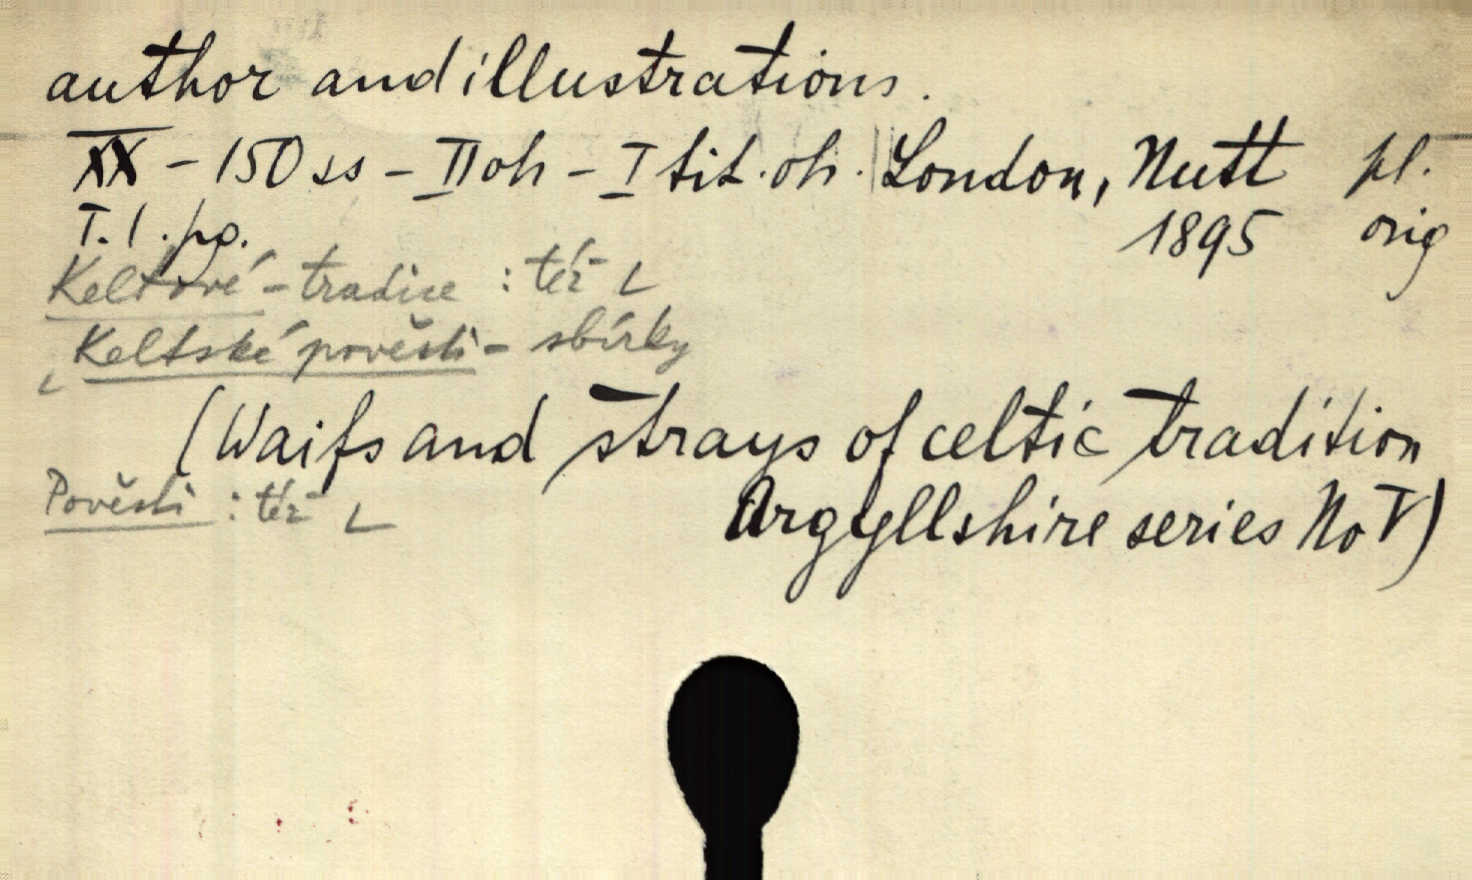 author and illustrations.
XX - 150 ss - II oh - I tit. oh. London, Nutt pl.
T. 1. pg. 1895 orig
Keltové - tradice : též L
L Keltské pověsti - sbírky
(Waifs and strays of celtic tradition
Pověsti : též L
Argyllshire series No V)